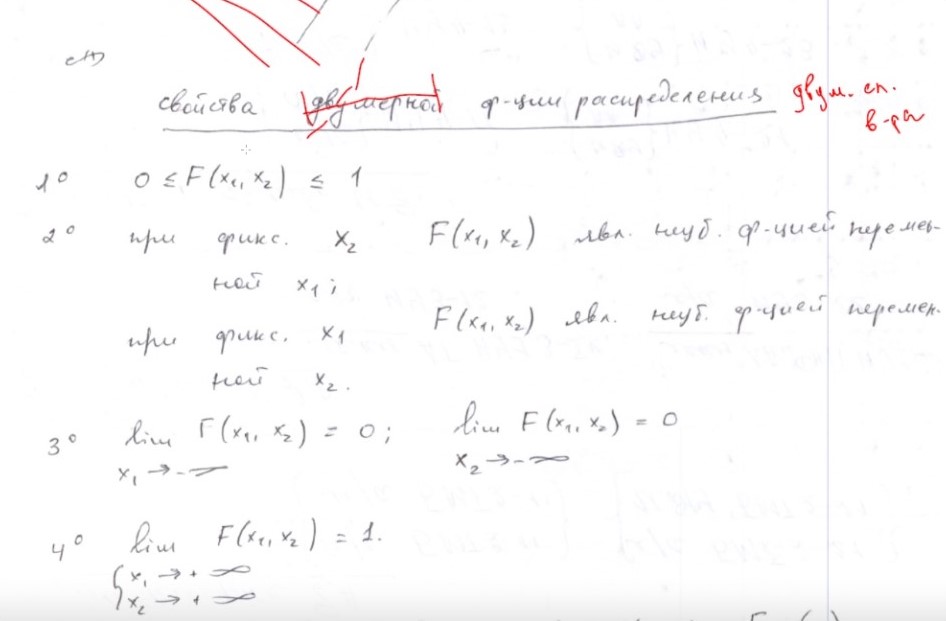 свойства двумерной ф-ции распределения двум. сл.
в-ра
1° 0 ≤ F(x₁, x₂) ≤ 1
2° при фикс. x₂ F(x₁, x₂) явл. неуб. ф-цией перемен-
ной x₁;
при фикс. x₁ F(x₁, x₂) явл. неуб. ф-цией перемен.
ной x₂.
3° lim F(x₁, x₂) = 0; lim F(x₁, x₂) = 0
x₁ → -∞ x₂ → -∞
4° lim F(x₁, x₂) = 1.
{x₁ → + ∞
x₂ → + ∞